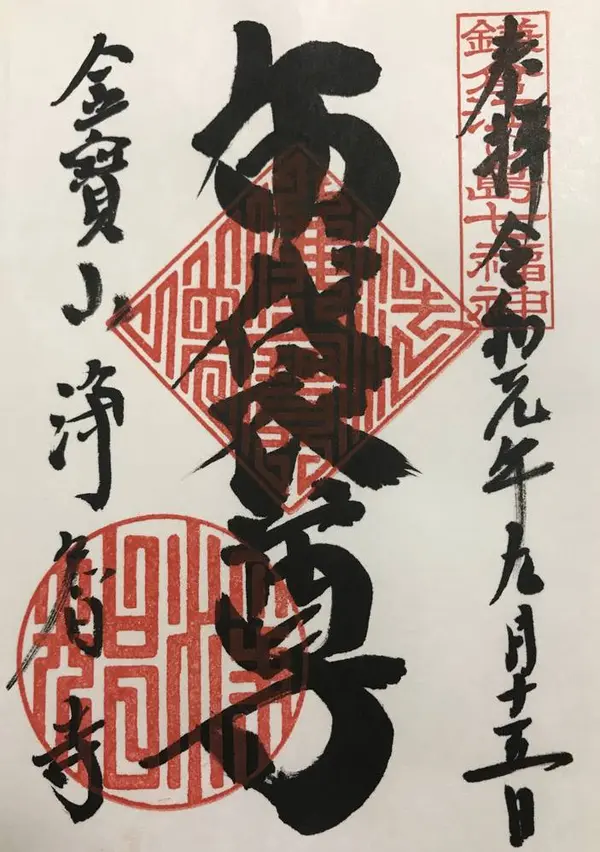 鎌倉江の島七福神
奉拝 令和元年九月十五日
布袋尊
金寶山浄智寺